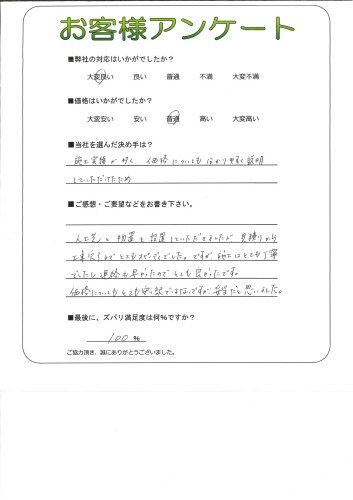 お客様アンケート
■弊社の対応はいかがでしたか？
大変良い　良い　普通　不満　大変不満
■価格はいかがでしたか？
大変安い　安い　普通　高い　大変高い
■当社を選んだ決め手は？
施工実績が多く　価格についても分かり易く説明
していただけたため
■ご感想・ご要望などをお書き下さい。
人工芝と物置を設置していただきましたが 見積りから
工事完了までとてもスピーディでした。ですが 施工はとても丁寧
でしたし連絡も早かったのでとても良かったです。
価格についてもとても安い訳ではないですが妥当だと思いました。
■最後に、ズバリ満足度は何%ですか？
100 %
ご協力頂き、誠にありがとうございました。